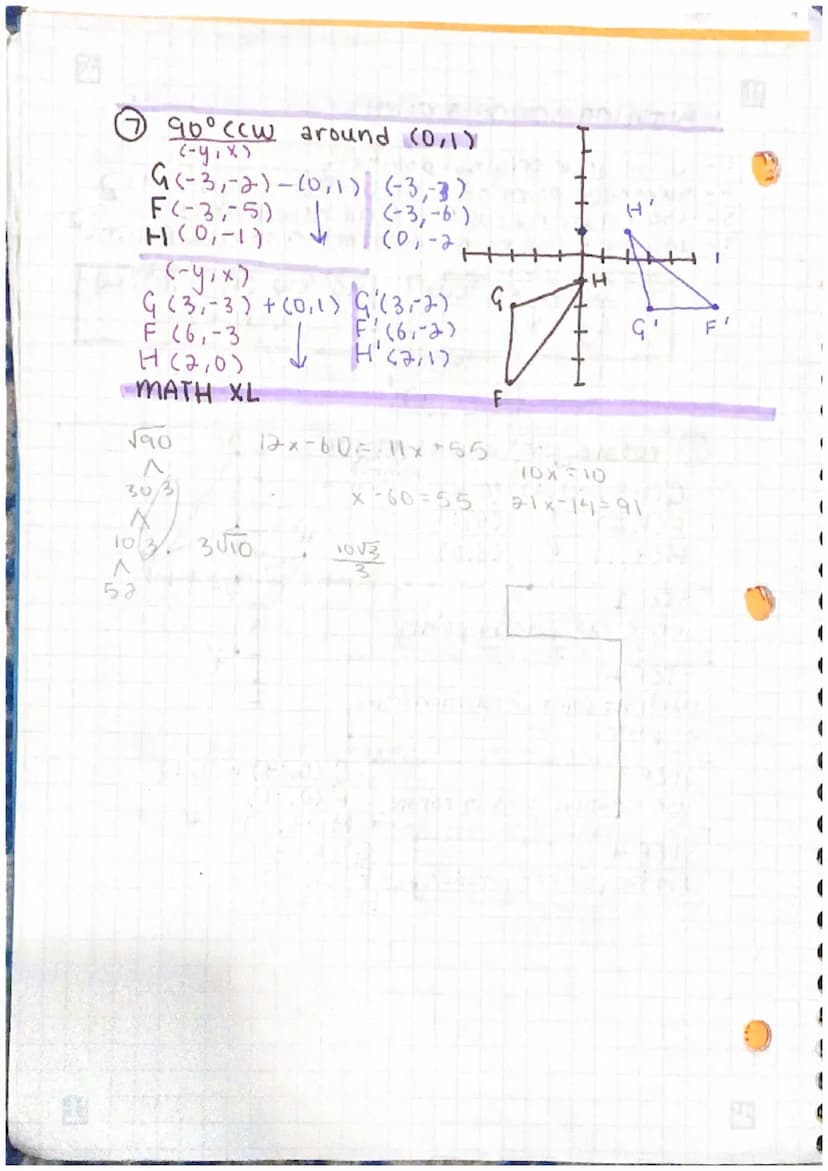 ⑦ 90° CCW around (0,1)
(-y,x)
G(-3,-2)-(0,1) (-3,-3)
F(-3,-5) (-3,-6)
H(0,-1) ↓ (0,-2
(-y,x)
G(3,-3)+(0,1) G'(3,-2)
F(6,-3 F'(6,-2)
H(2,0) ↓ H'(2,1)
MATH XL
H'
H
G
G' F'
F
√90 12x-60=11x+55
10x=10
30 3 x-60=55 21x-14=91
10 3 3√10 10√3
3
52